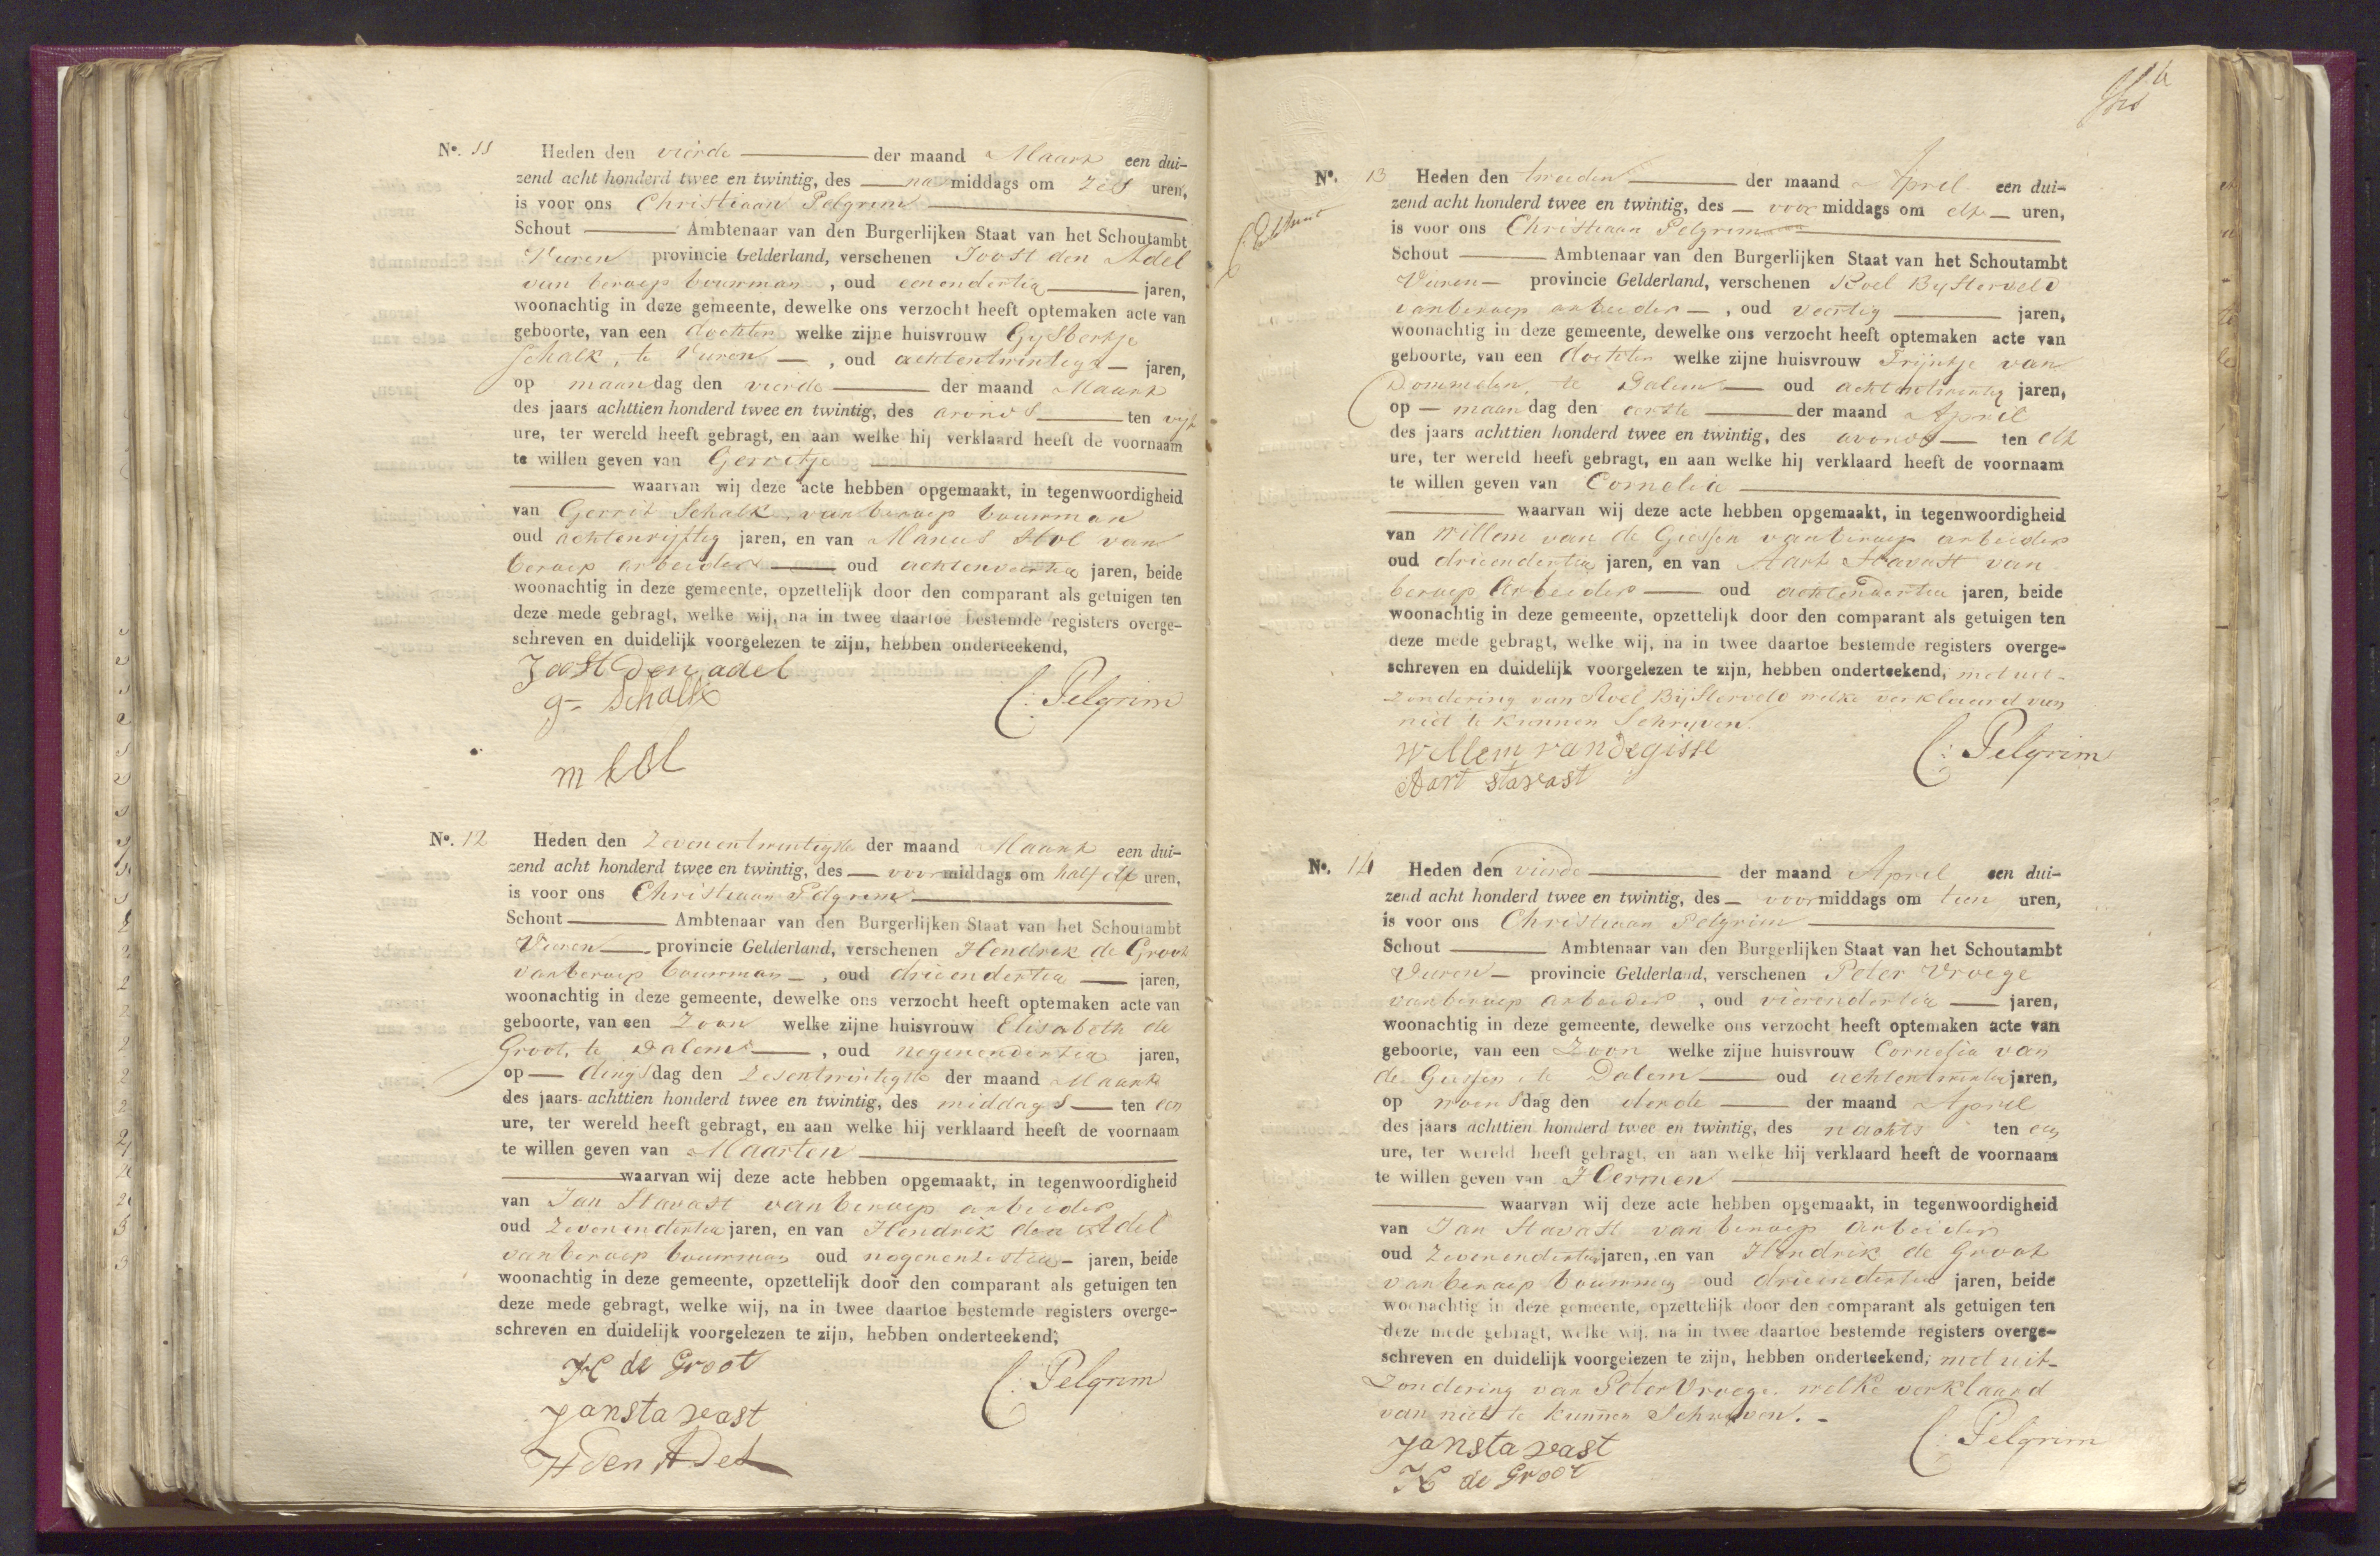 No. 11 Heden den vierde der maand Maart een dui-
zend acht honderd twee en twintig, des na middags om zes uren,
is voor ons Christiaan Pelgrim
Schout Ambtenaar van den Burgerlijken Staat van het Schoutambt
Vuren provincie Gelderland, verschenen Joost den Adel
van beroep bouwman, oud eenendertig jaren,
woonachtig in deze gemeente, dewelke ons verzocht heeft optemaken acte van
geboorte, van een dochter welke zijne huisvrouw Gysbertje
Schalk, te Vuren, oud achtentwintig jaren,
op maandag den vierde der maand Maart
des jaars achttien honderd twee en twintig, des avonds ten vijf
ure, ter wereld heeft gebragt, en aan welke hij verklaard heeft de voornaam
te willen geven van Gerritje
waarvan wij deze acte hebben opgemaakt, in tegenwoordigheid
van Gerrit Schalk, van beroep bouwman
oud achtenvijftig jaren, en van Manus Hol van
beroep arbeider oud achtenveertig jaren, beide
woonachtig in deze gemeente, opzettelijk door den comparant als getuigen ten
deze mede gebragt, welke wij, na in twee daartoe bestemde registers overge-
schreven en duidelijk voorgelezen te zijn, hebben onderteekend,
Joost Den adel
g- Schalk
C: Pelgrim
m hol
No. 12 Heden den Zevenentwintigste der maand Maart een dui-
zend acht honderd twee en twintig, des voormiddags om half elf uren,
is voor ons Christiaan Pelgrim
Schout Ambtenaar van den Burgerlijken Staat van het Schoutambt
Vuren provincie Gelderland, verschenen Hendrik de Groot
van beroep bouwman, oud drieendertig jaren,
woonachtig in deze gemeente, dewelke ons verzocht heeft optemaken acte van
geboorte, van een Zoon welke zijne huisvrouw Elisabeth de
Groot, te Dalem, oud negenendertig jaren,
op dingsdag den Zesentwintigste der maand Maart
des jaars achttien honderd twee en twintig, des middags ten een
ure, ter wereld heeft gebragt, en aan welke hij verklaard heeft de voornaam
te willen geven van Maarten
waarvan wij deze acte hebben opgemaakt, in tegenwoordigheid
van Jan Stavast van beroep arbeider
oud Zevenendertig jaren, en van Hendrik den Adel
van beroep bouwman oud negenenzestig jaren, beide
woonachtig in deze gemeente, opzettelijk door den comparant als getuigen ten
deze mede gebragt, welke wij, na in twee daartoe bestemde registers overge-
schreven en duidelijk voorgelezen te zijn, hebben onderteekend;
H de Groot
C: Pelgrim
Jan stavast
H den Adel
No. 13 Heden den tweeden der maand April een dui-
zend acht honderd twee en twintig, des voor middags om elf uren,
is voor ons Christiaan Pelgrim
Schout Ambtenaar van den Burgerlijken Staat van het Schoutambt
Vuren provincie Gelderland, verschenen Roel Bysterveld
van beroep arbeider, oud veertig jaren,
woonachtig in deze gemeente, dewelke ons verzocht heeft optemaken acte van
geboorte, van een dochter welke zijne huisvrouw Trijntje van
Dommelen, te Dalem oud achtentwintig jaren,
op maandag den eerste der maand April
des jaars achttien honderd twee en twintig, des avonds ten elf
ure, ter wereld heeft gebragt, en aan welke hij verklaard heeft de voornaam
te willen geven van Cornelia
waarvan wij deze acte hebben opgemaakt, in tegenwoordigheid
van Willem van de Giessen van beroep arbeider
oud drieendertig jaren, en van Aart Stavast van
beroep Arbeider oud achtendertig jaren, beide
woonachtig in deze gemeente, opzettelijk door den comparant als getuigen ten
deze mede gebragt, welke wij, na in twee daartoe bestemde registers overge-
schreven en duidelijk voorgelezen te zijn, hebben onderteekend, met uit-
zondering van Roel Bijsterveld welke verklaard van
niet te kunnen Schryven.
Willem van de gisse
C: Pelgrim
Aart stavast
No. 14 Heden den vierde der maand April een dui-
zend acht honderd twee en twintig, des voormiddags om tien uren,
is voor ons Christiaan Pelgrim
Schout Ambtenaar van den Burgerlijken Staat van het Schoutambt
Vuren provincie Gelderland, verschenen Peter Vroege
van beroep arbeider, oud vierendertig jaren,
woonachtig in deze gemeente, dewelke ons verzocht heeft optemaken acte van
geboorte, van een Zoon welke zijne huisvrouw Cornelia van
de Giessen, te Dalem oud achtentwintig jaren,
op woensdag den derde der maand April
des jaars achttien honderd twee en twintig, des nachts ten een
ure, ter wereld heeft gebragt, en aan welke hij verklaard heeft de voornaam
te willen geven van Hermen
waarvan wij deze acte hebben opgemaakt, in tegenwoordigheid
van Jan Stavast van beroep Arbeider
oud Zevenendertig jaren, en van Hendrik de Groot
van beroep bouwman oud drieendertig jaren, beide
woonachtig in deze gemeente, opzettelijk door den comparant als getuigen ten
deze mede gebragt, welke wij, na in twee daartoe bestemde registers overge-
schreven en duidelijk voorgelezen te zijn, hebben onderteekend; met uit-
Zondering van Peter Vroege welke verklaard
van niet te kunnen Schryven.
C: Pelgrim
Jan stavast
H de Groot